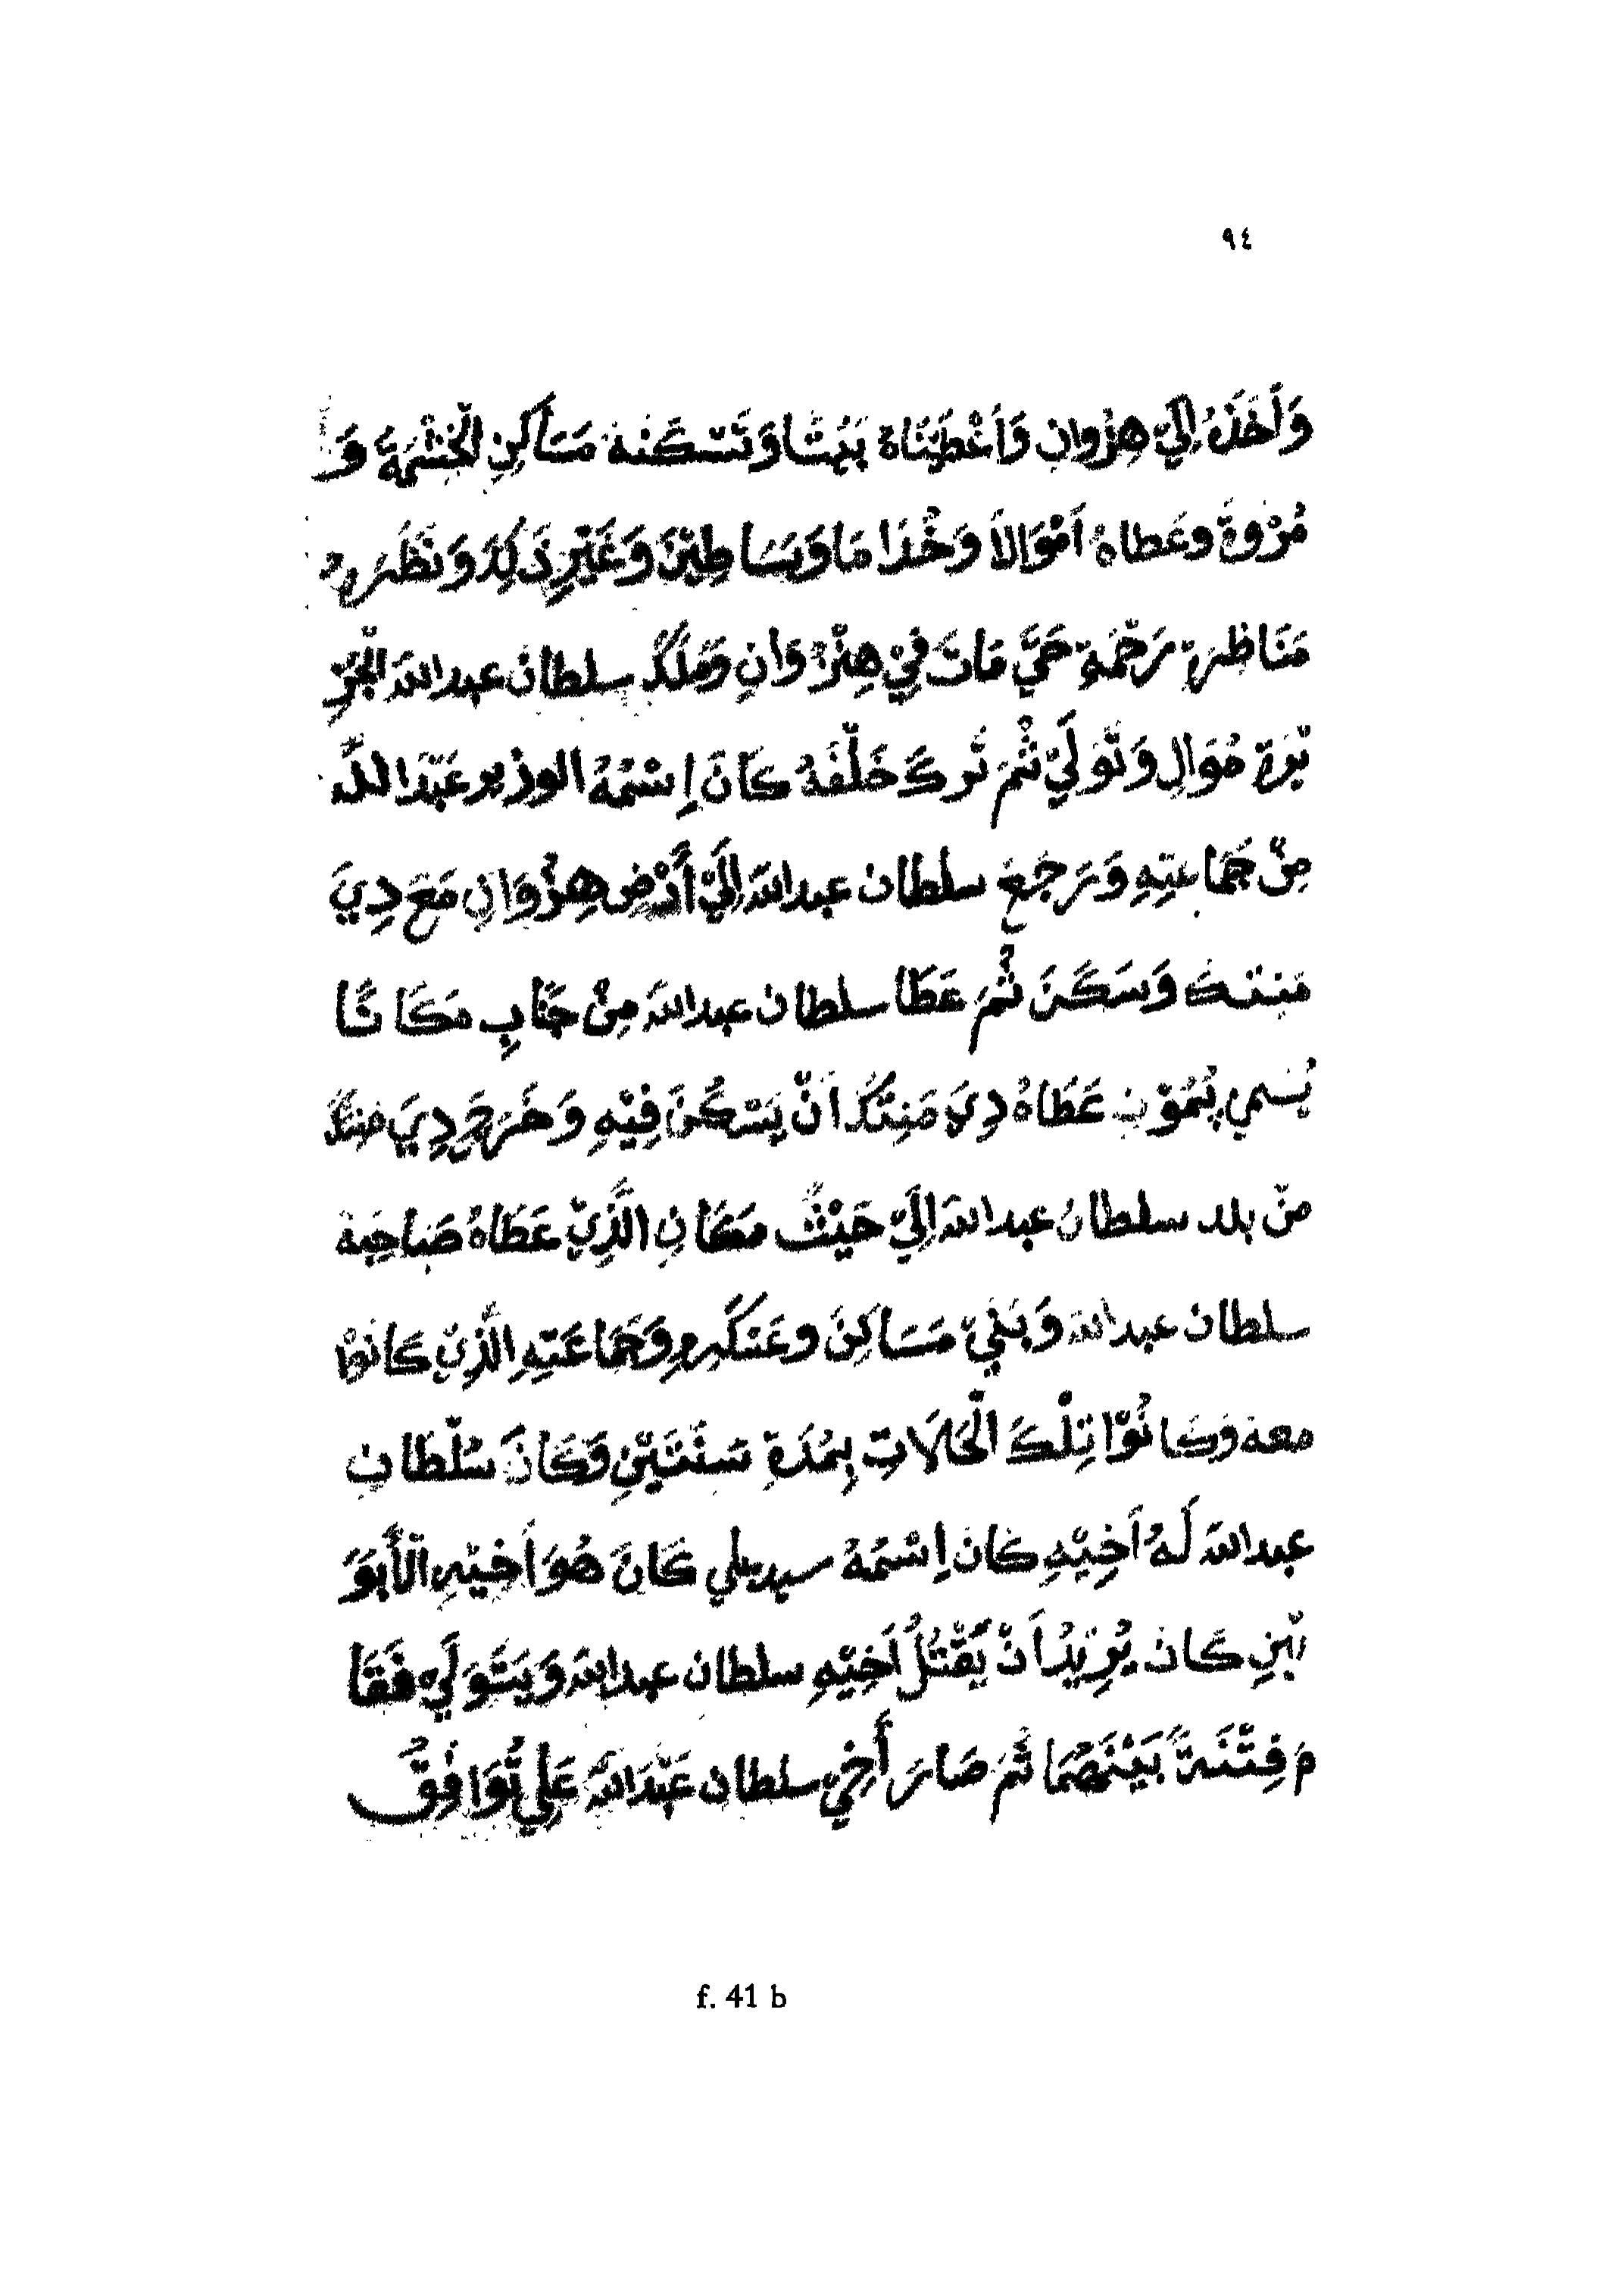 ٩٤
وَأَخَذَهُ إِلَيْ هِنْزُوانِ وَاَعْطَيْنَاهُ بَيْتًا وَتَسْكُنهُ مَسَاكِنِ الْحِشْمَةَ وَ
مُرْوةً وعَطاهُ اَمْوَالاً وَخُدَّامَا وَبَسَاطِيْنَ وَغَيْرِ ذَلِكَ وَنَظَرَهُ
مَنَاظِرَةَ رَحْمَةِ حَتَّي مَاتَ فِيْ هِنْزُوَانِ وَمَلَكَ سلطان عبدالله الْجَزِ
يْرَة مُوَالِ وَتَوَلَيْ ثُمَ تَرَكَ خَلْفَهُ كَانَ إِسْمُهُ الوزير عَبْدَ اللَّه
مِنْ جَمَاعَتِهِ وَرَجَعَ سلطان عبدالله إِلَيْ أَرْضِ هِنْزُوَانِ مَعَ دِيَ
مَنتك وَسَكَنَ ثُمَ عَطَا سلطان عبدالله مِنْ جَنَابِ مَكَانًا
يُسمي پُمُوْنِ عَطَاهُ دِيَ مَنِتَكُ اَنْ يَسْكُنَ فِيْهِ وَخَرَجَ دِيَ مَنِتَكَ
منْ بلد سلطان عبدالله إِلَيْ حَيْثُ مَكَانِ الَّذِيْ عَطَاهُ صَاحِبهُ
سلطان عبدالله وَبَنَيْ مَسَاكِنَ وعَسْكَرِهِ وَجَمَاعَتِهِ الَّذِيْ كَانُوْا
معهُ وَكَانُوْا تِلْكَ الْحَالَاتِ بِمُدَةِ سَنَتَيْنِ وَكَانَ سُلْطَانِ
عبدالله لَهُ اَخِيْهِ كَانَ اِسْمُهُ سيدعلي كَانَ هُوَ اَخِيْهِ الْأَبَوَ
يْنِ كَانَ يُرِيْدُ اَنْ يَقْتُلُ اَخِيْهِ سلطان عبدالله وَيَتَوَلَيْ فَقَا
مَ فِتْنَةً بَيْنَهُمَا ثُمَ صَارَ أَخِيْ سلطان عَبْدَالله عَلِي تُوَافِقُ
f. 41 b